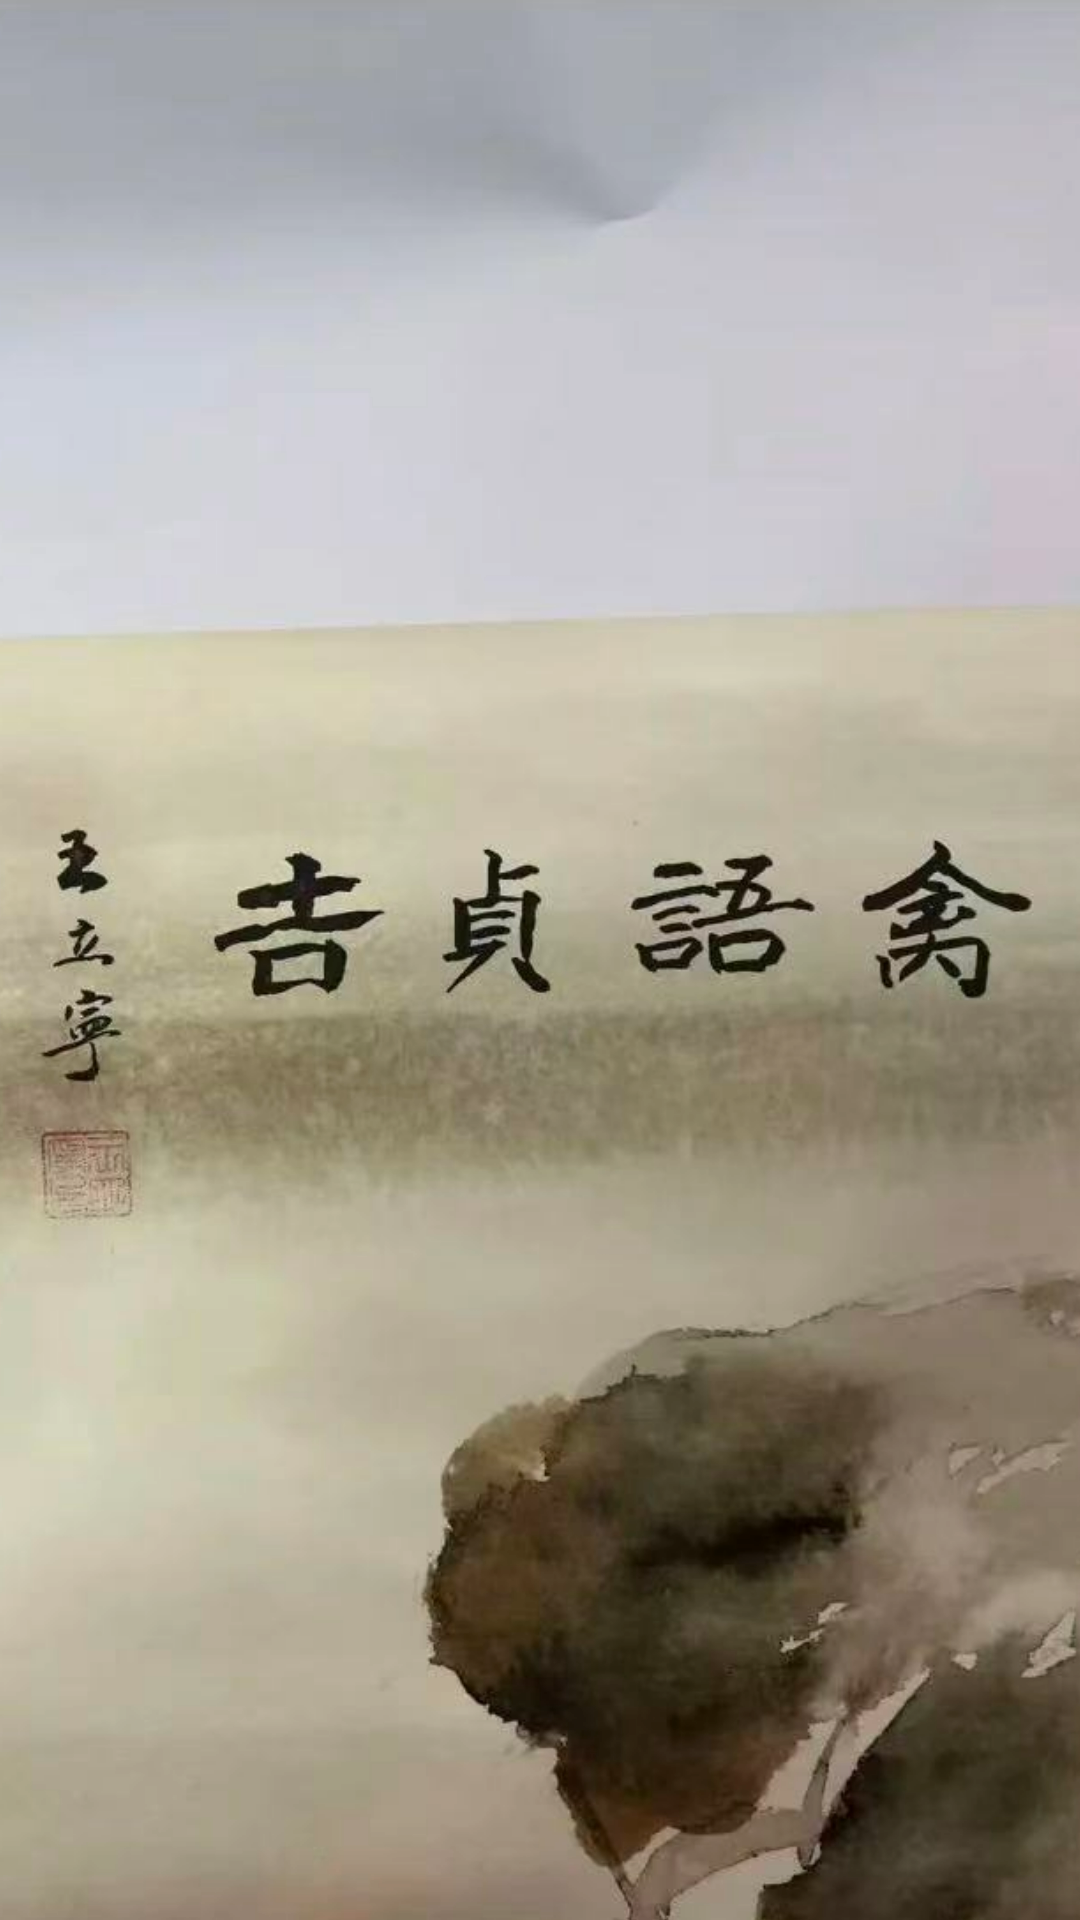 禽語貞吉
王立寧